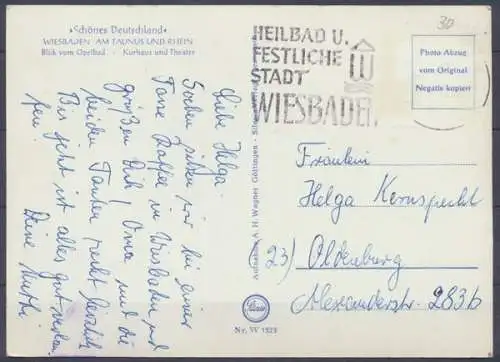 »Schönes Deutschland«
WIESBADEN AM TAUNUS UND RHEIN
Blick vom Opelbad · Kurhaus und Theater
30
HEILBAD U.
FESTLICHE
STADT
WIESBADEN
W
Photo-Abzug
vom Original
Negativ kopiert
Liebe Helga.
Soeben sitzen wir bei einer
Tasse Kaffee in Wiesbaden und
grüßen Dich! Oma und die
beiden Tanten recht herzlich
Bis jetzt ist alles gut verlau-
fen!
Deine Mutti
A. H. Wagner Göttingen
Fräulein
Helga Kernspecht
(23) Oldenburg
Alexanderstr. 283b
Nr. W 1523